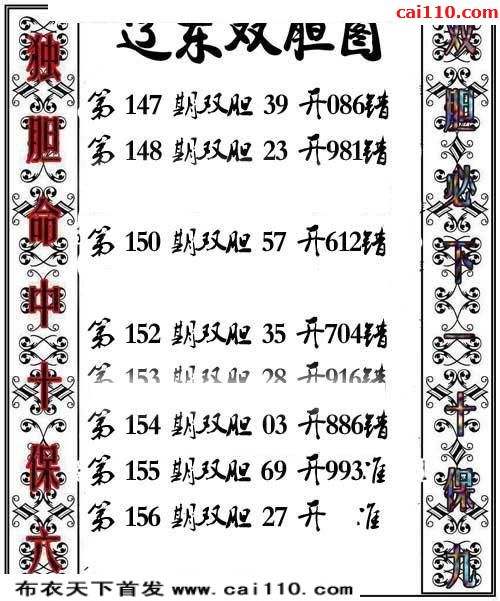 cai110.com
辽东双胆图
独胆命中十保六
双胆必下一十保九
第 147 期双胆 39 开086错
第 148 期双胆 23 开981错
第 150 期双胆 57 开612错
第 152 期双胆 35 开704错
第 153 期双胆 28 开916错
第 154 期双胆 03 开886错
第 155 期双胆 69 开993准
第 156 期双胆 27 开 准
布衣天下首发 www.cai110.com